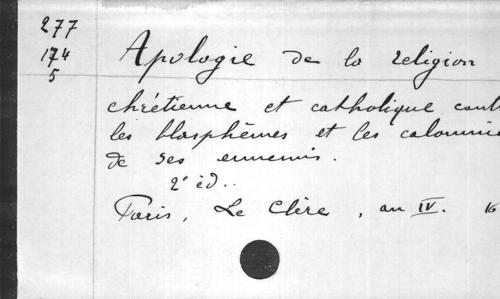 277
174
5
Apologie de la religion
chrétienne et catholique cont
les blasphèmes et les calomnie
de ses ennemis.
2e éd..
Paris, Le Clère, an IV. 16